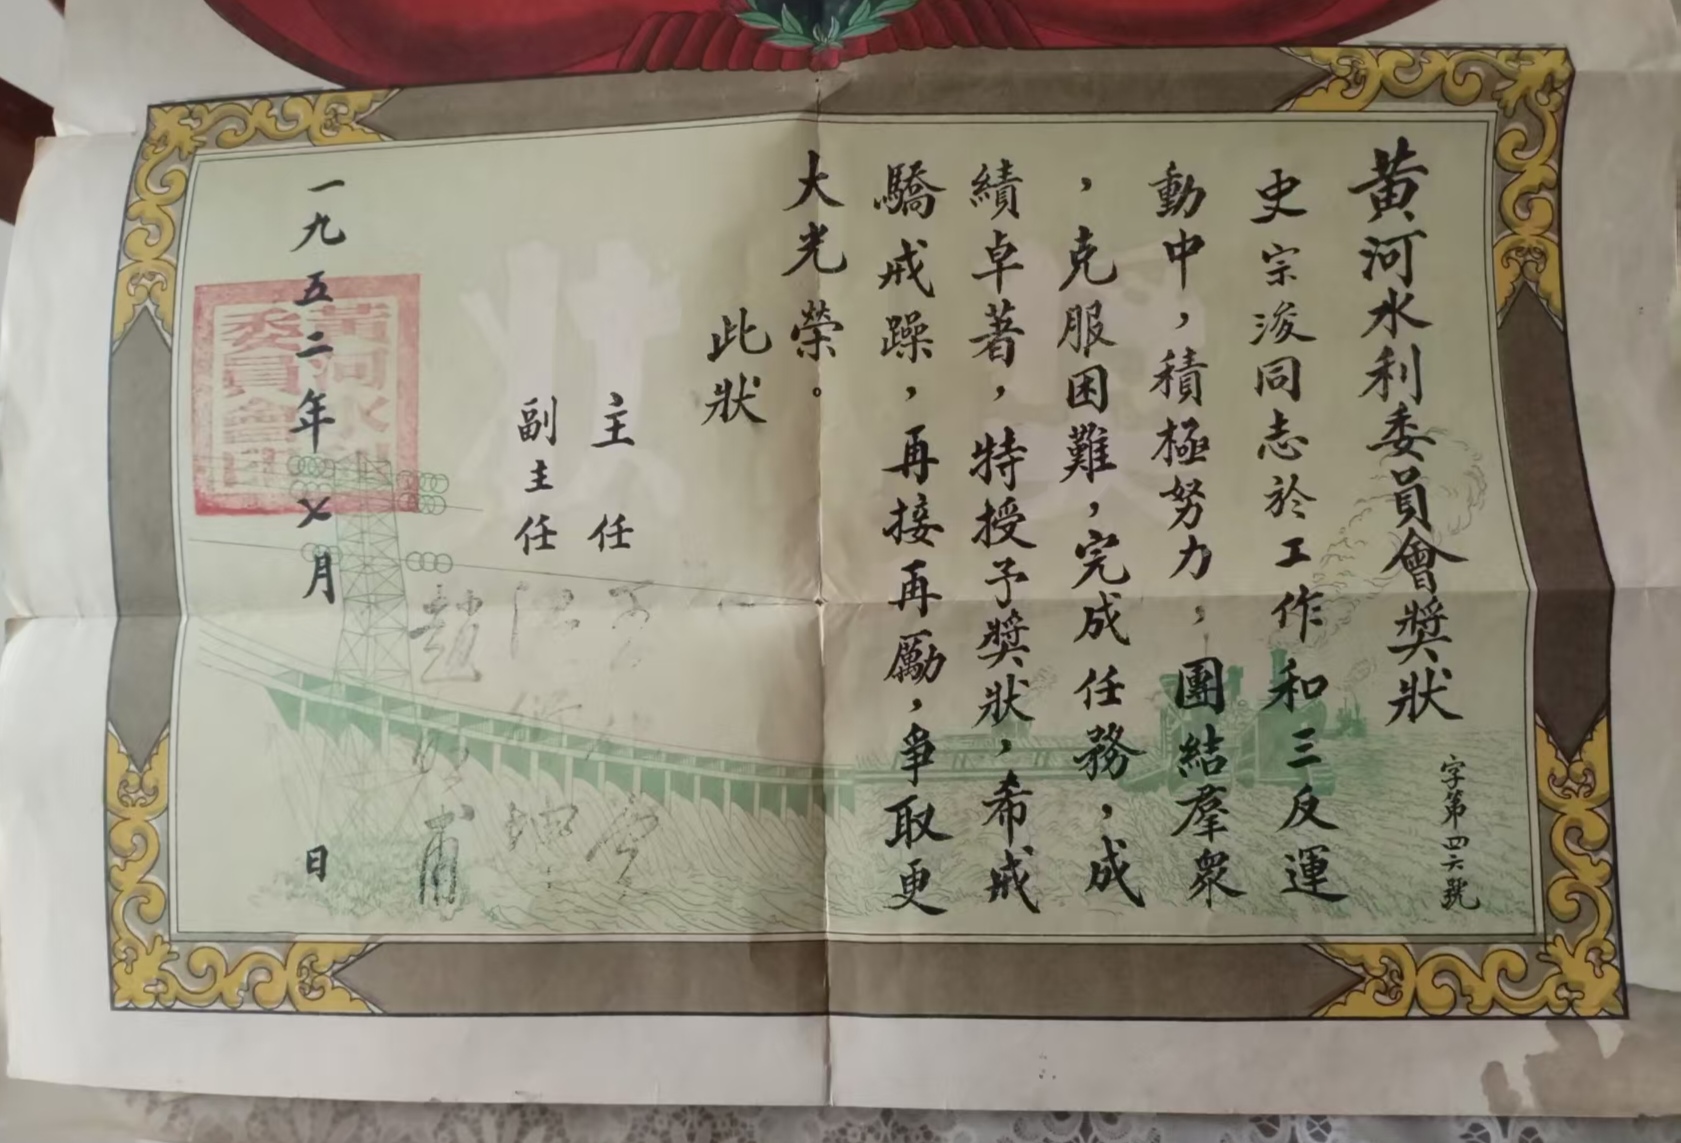 黃河水利委員會獎狀
字第四六號
史宗浚同志於工作和三反運
動中，積極努力，團結羣眾
，克服困難，完成任務，成
績卓著，特授予獎狀，希戒
驕戒躁，再接再勵，爭取更
大光榮。
此狀
主任
副主任
趙明甫
一九五二年七月 日
黃河水利
委員會印
獎狀